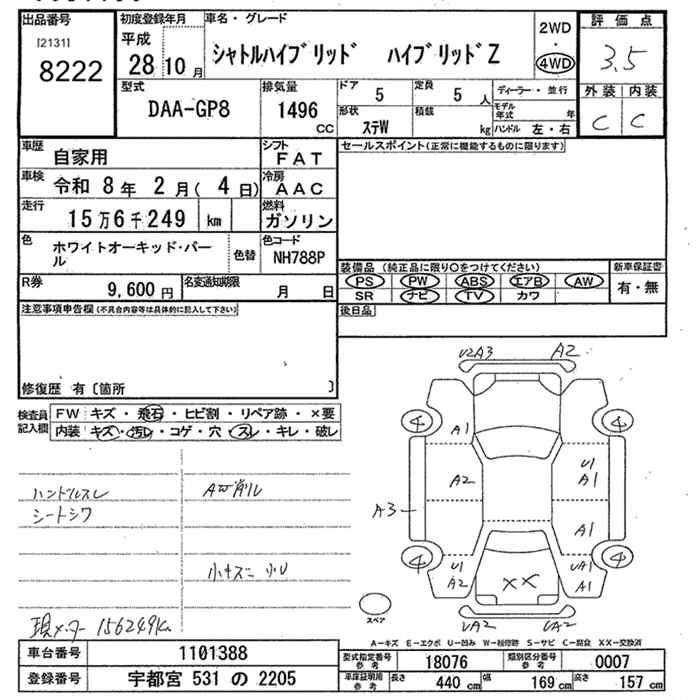 出品番号
[2131]
8222
初度登録年月
平成
28 10 月
車名・グレード
シャトルハイブリッド ハイブリッドZ
2WD
・
4WD
評価点
3.5
外装 内装
C C
型式
DAA-GP8
排気量
1496
cc
ドア
5
定員
5 人
形状
ステW
積載
kg
ディーラー・並行
モデル年式 年
ハンドル 左・右
車歴
自家用
シフト
FAT
車検
令和 8年 2月( 4日)
冷房
AAC
走行
15万6千249 km
燃料
ガソリン
色
ホワイトオーキッド・パール
色替
色コード
NH788P
R券
9,600円
名変通知期限
月 日
セールスポイント(正常に機能するものに限ります)
装備品 (純正品に限り○をつけてください)
PS PW ABS エアB AW
SR ナビ TV カワ
新車保証書
有・無
後日品
注意事項申告欄(不具合内容等は具体的に記入して下さい)
修復歴 有〔箇所 〕
検査員記入欄
FW キズ・飛石・ヒビ割・リペア跡・×要
内装 キズ・汚レ・コゲ・穴・スレ・キレ・破レ
ハンドルスレ
シートシワ
AW削レ
小キズ
現メーター 156249Km
U2A3 A2
4 4
A1
A2
U1
A1
A3
A1
4 4
U1
A2
UA1
A1
XX
UA2 UA2
スペア
A－キズ E－エクボ U－凹み W－補修跡 S－サビ C－腐食 XX－交換済
車台番号
1101388
登録番号
宇都宮 531 の 2205
型式指定番号
参考
18076
類別区分番号
参考
0007
車庫証明用
参考
長さ
440 cm
幅
169 cm
高さ
157 cm